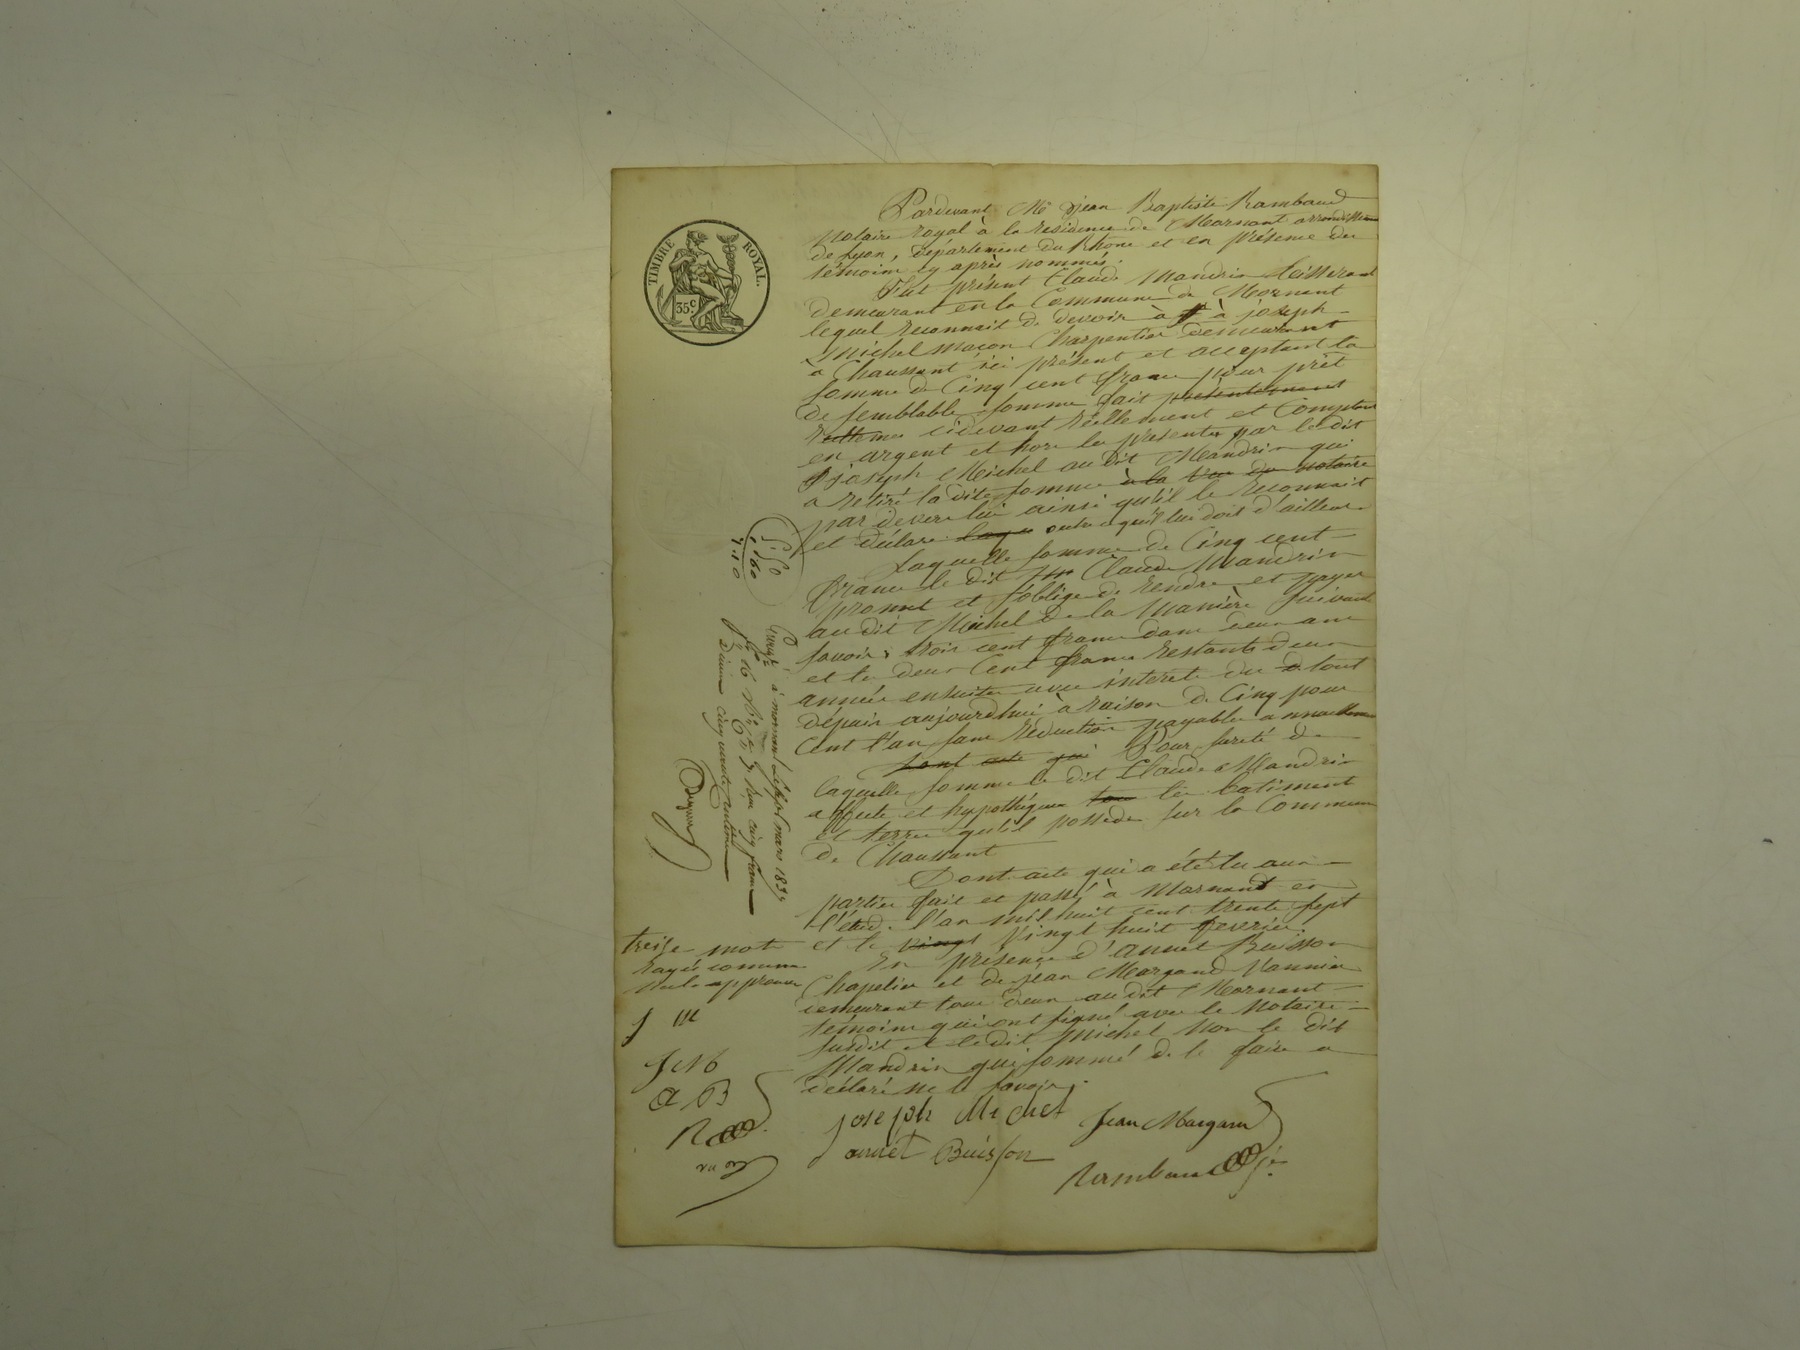 TIMBRE ROYAL.
35c
Pardevant Me jean Baptiste Rambaud
notaire royal à la residence de Mornant arrondissement
de Lyon, Département du Rhône et en présence des
témoins cy après nommés.
Fut présent Claude Mandrin tisserand
demeurant en la Commune de Mornant
lequel reconnait de devoir à à joseph
Michel maçon Charpentier demeurant
à Chaussant ici présent et acceptant la
somme de Cinq cent francs pour prêt
de semblable somme fait présentement
réellemen cidevant réellement et Comptant
en argent et hors les présentes par le dit
joseph Michel au dit Mandrin qui
a retiré la dite somme à la vue du notaire
par devers lui ainsi qu'il le reconnait
et déclare outre ce qu'il lui doit d'ailleurs
Laquelle somme de Cinq cent
francs le dit Claude Mandrin
promet et s'oblige de rendre et payer
au dit Michel de la manière suivante
savoir: trois cent francs dans deux ans
et les deux Cent francs restants deux
années ensuite avec interets du tout
dépuis aujourdhui à raison de Cinq pour
Cent l'an sans réduction payables annuellement
Dont acte qui Pour sureté de
laquelle somme le dit Claude Mandrin
affecte et hypothéque tous les batiments
et terres qu'il possède sur la Commune
de Chaussant
Dont acte qui a été lu aux
parties fait et passé à Mornant en
l'étude l'an mil huit cent trente sept
et le vingt Vingt huit fevrier.
En présence d'annet Buisson
Chapelier et de jean Margand Vannier
demeurant tous deux au dit Mornant
témoins qui ont signé avec le Notaire
susdit et le dit Michel Non le dit
Mandrin qui sommé de le faire a
déclaré ne le savoir.
joseph Michel
Jean Margand
annet Buisson
Rambaud
5.50
treize mots
rayés comme
nuls approuvés
J M
A B